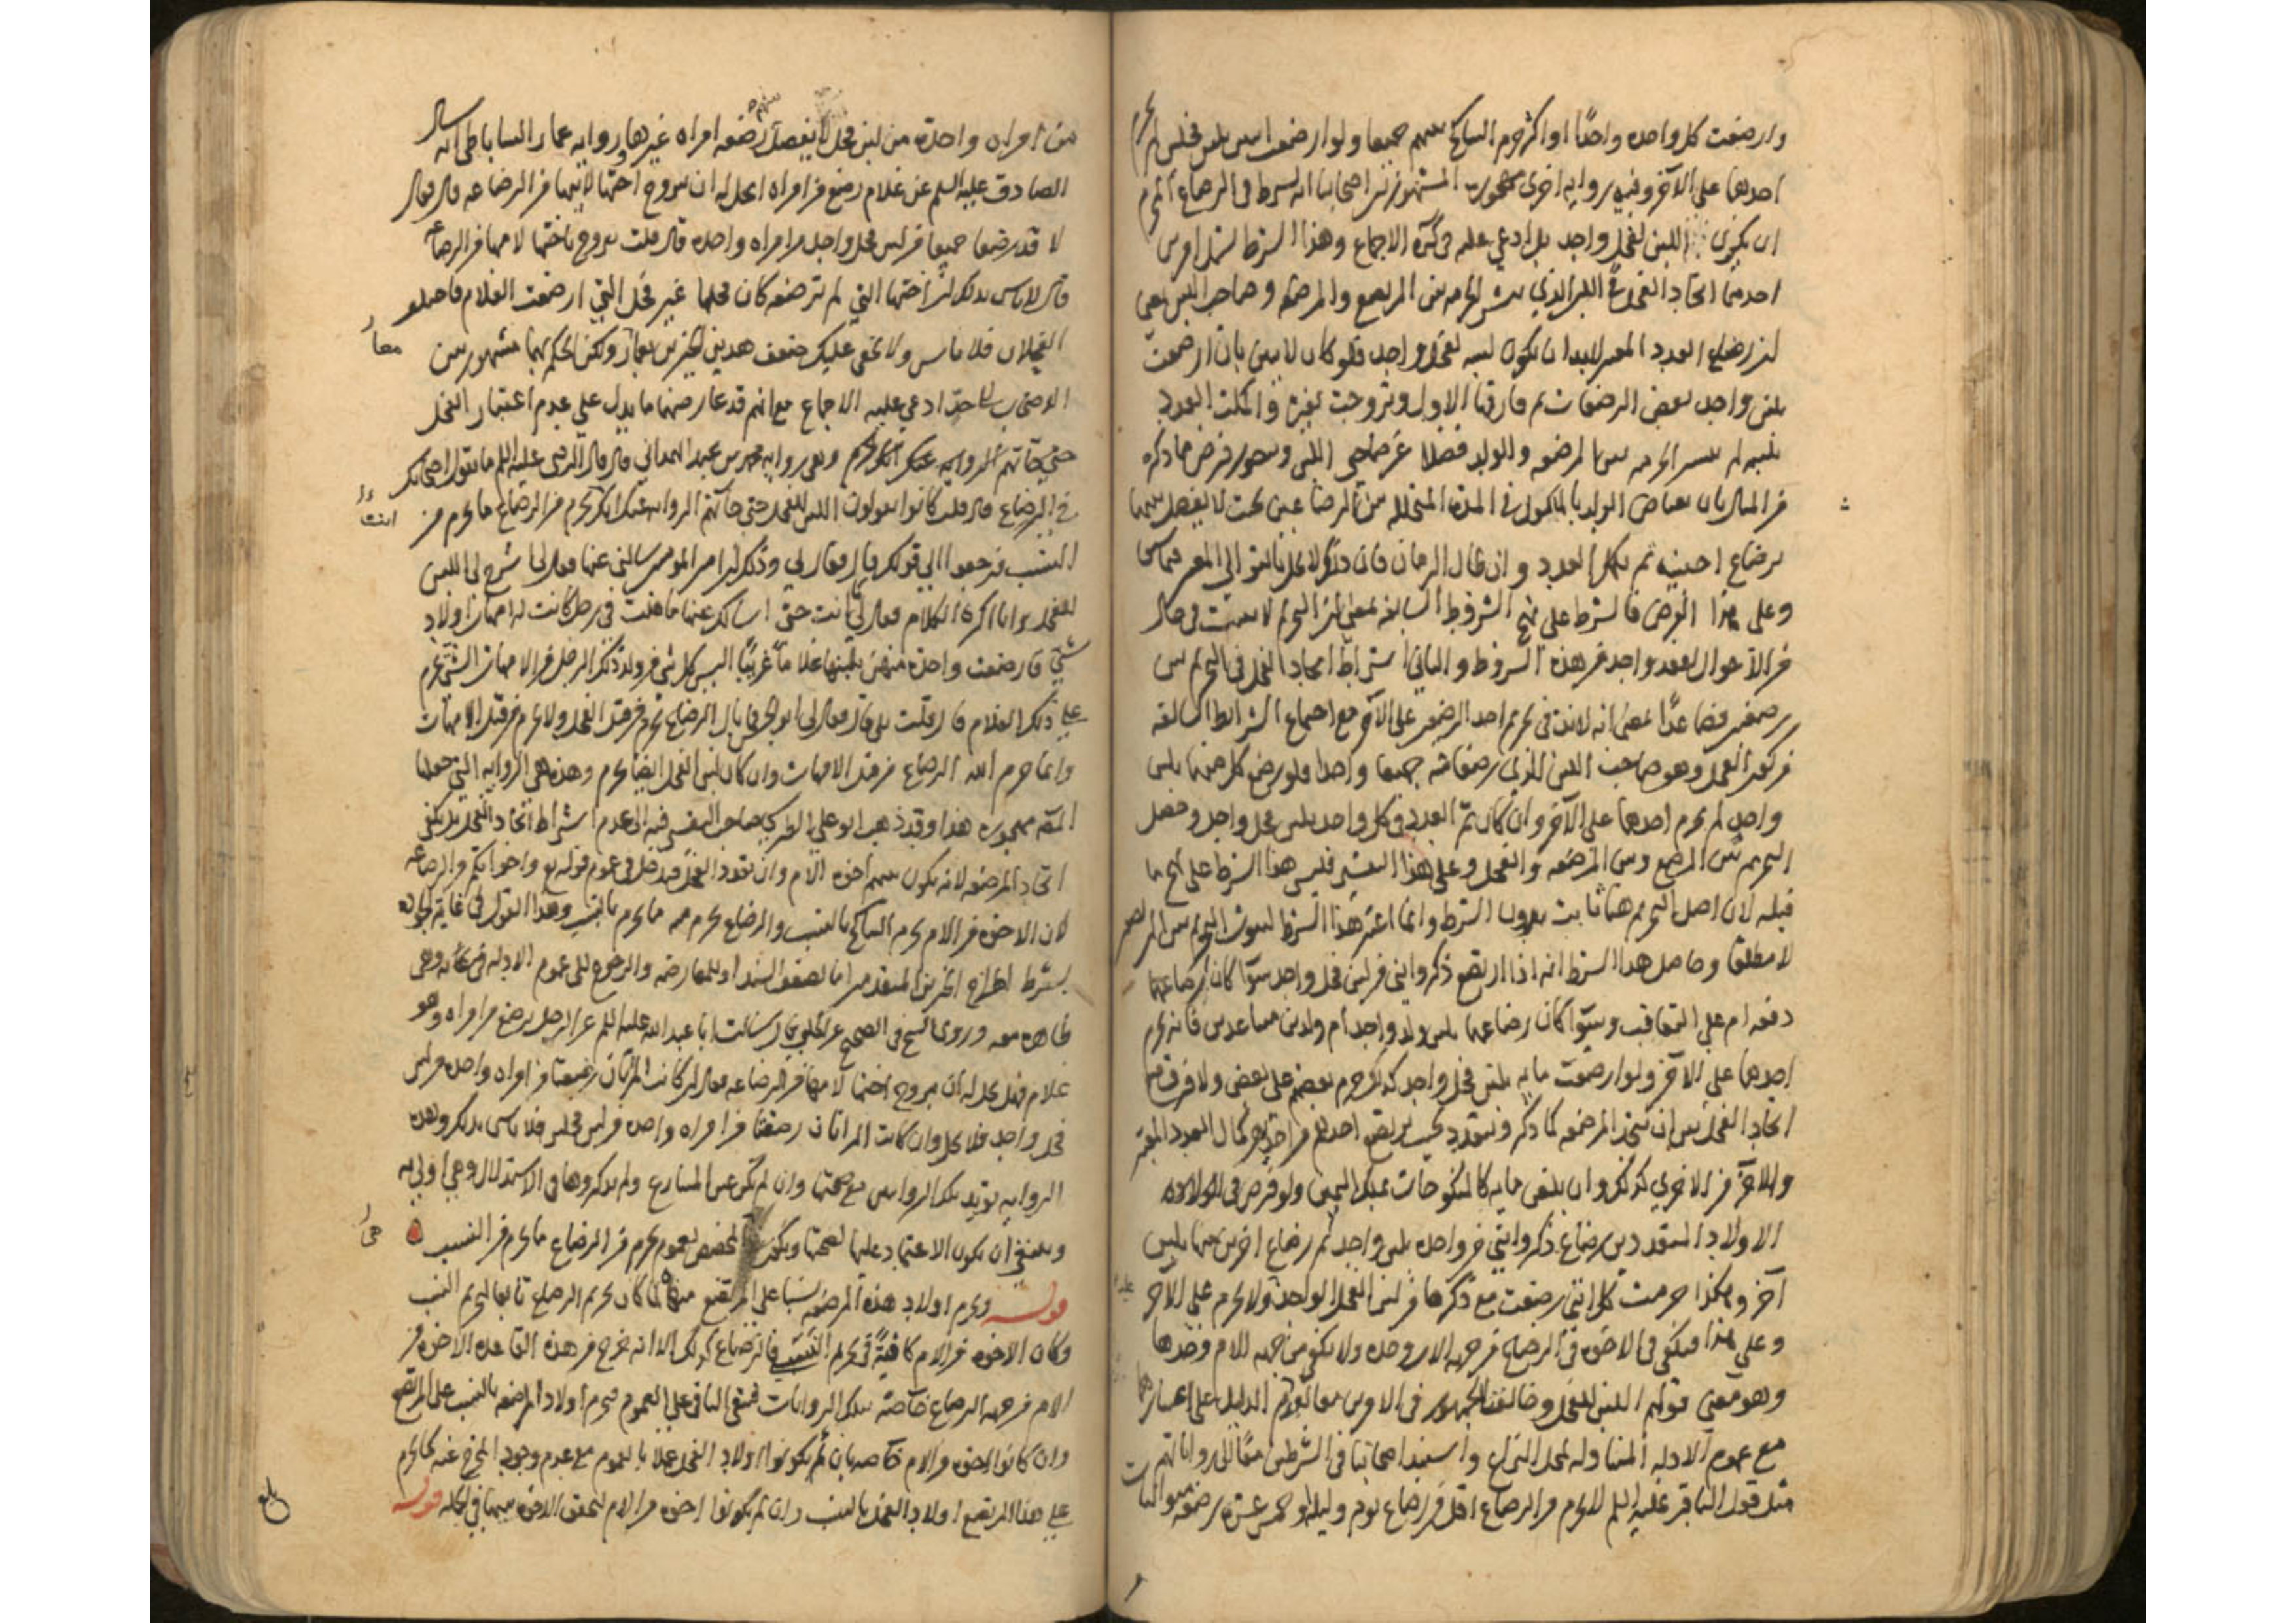 وارضعت كل واحدة واحدًا او اكثر حرم التناكح بينهم جميعا ولو ارضعت اثنين بلبن فحلين لم يحرم
احدهما على الآخر وفيه رواية اخرى مهجورة المشهور بين اصحابنا انه يشترط في الرضاع المحرم
ان يكون اللبن لفحل واحد بل ادعى عليه في كره الاجماع وهذا الشرط يشمل امرين
احدهما اتحاد الفحل في اللبن الذي ينشر الحرمة بين المرتضع والمرضعة وصاحب اللبن بمعنى
ان رضاع العدد المعتبر لا بد ان يكون لبنه لفحل واحد فلو كان لاثنين بان ارضعت
بلبن واحد بعض الرضعات ثم فارقها الاول وتزوجت بغيره واكملت العدد
بلبنه لم ينشر الحرمة بين المرضعة والولد فضلا عن صاحبي اللبن ويتصور فرض ما ذكره
من المثال بان يعتاض الولد بالمأكول في المدة المتخللة بين الرضاعين بحيث لا يفصل بينهما
برضاع اجنبية ثم يكمل العدد وان طال الزمان فان ذلك لا يخل بالتوالي المعتبر
وعلى هذا الفرض فالشرط على نهج الشروط السابقة بمعنى ان التحريم لا يثبت في حال
من الاحوال لفقد واحد من هذه الشروط والثاني اشتراط اتحاد الفحل في التحريم بين
رضيعين فصاعدًا بمعنى انه لا بد في تحريم احد الرضيعين على الآخر مع اجتماع الشرائط السالفة
من كون الفحل وهو صاحب اللبن الذي رضعا منه جميعا واحدا فلو رضع كل منهما بلبن
واحد لم يحرم احدهما على الآخر وان كان تم العدد في كل واحد بلبن فحل واحد وحصل
التحريم بين المرتضع وبين المرضعة والفحل وعلى هذا التفسير فليس هذا الشرط على نهج ما
قبله لان اصل التحريم هنا ثابت بدون الشرط وانما اعتبر هذا الشرط لثبوت التحريم بين المرتضعين
لا مطلقا وحاصل هذا الشرط انه اذا ارتضع ذكر وانثى من لبن فحل واحد سواء كان رضاعهما
دفعة ام على التعاقب وسواء كان رضاعهما بلبن ولد واحد ام ولدين متباعدين فانه يحرم
احدهما على الآخر ولو ارضعت مائة بلبن فحل واحد كذلك حرم بعضهم على بعض ولا فرق مع
اتحاد الفحل بين ان تتحد المرضعة كما ذكر وتتعدد بحيث يرتضع احدهم من احديهن كمال العدد المعتبر
والآخر من الاخرى كذلك وان بلغن مائة كالمنكوحات بملك اليمين ولو فرض في
الاولاد المتعددين رضاع ذكر وانثى من واحدة بلبن واحد ثم رضاع اخرين منها بلبن
آخر وهكذا حرمت كل انثى رضعت مع ذكرها من لبن الفحل الواحد ولا يحرم على الآخر
وعلى هذا فيكفي في الاخوة في الرضاع من جهة الاب وحده ولا يكفي من جهة الام وحدها
وهو معنى قولهم اللبن للفحل وخالفنا الجمهور في الامرين معا لعدم الدليل على اعتبارهما
مع عموم الادلة المتناولة لمحل النزاع واستند اصحابنا في الشرطين معًا الى رواياتهم
مثل قول الباقر عليه السلم لا يحرم من الرضاع اقل من رضاع يوم وليلة او خمس عشرة رضعة متواليات
من امراة واحدة من لبن فحل لا يفصل بينها رضعة امراة غيرها ورواية عمار الساباطي انه سال
الصادق عليه السلم عن غلام رضع من امراة ايحل له ان يتزوج اختها لابيها من الرضاعة قال فقال
لا قد رضعا جميعا من لبن فحل واحد من امراة واحدة قال قلت يتزوج باختها لامها من الرضاعة
قال لا باس بذلك ان اختها التي لم ترضعه كان فحلها غير فحل التي ارضعت الغلام فاختلف
الفحلان فلا باس ولا يخفى عليك ضعف هذين الخبرين ولكن الحكم بهما مشهور بين
معا
الاصحاب الى حد ادعي عليه الاجماع مع انهم قد عارضهما ما يدل على عدم اعتبار الفحل
وهي رواية محمد بن عبيد الهمداني قال قال الرضا عليه السلم ما يقول اصحابك
في الرضاع قال قلت كانوا يقولون اللبن للفحل حتى جآتهم الرواية عنك انك تحرم من الرضاع ما يحرم من
النسب فرجعوا الى قولك قال فقال لي وذلك لان امير المومنين سالني عنها فقال لي اشرح لي اللبن
للفحل وانا اكره الكلام فقال لي كما انت حتى اسالك عنها ما قلت في رجل كانت له امهات اولاد
شتى فارضعت واحدة منهن بلبنها غلاما غريبًا اليس كل شيء من ولد ذلك الرجل من الامهات الشتى محرم
على ذلك الغلام قال قلت بلى قال فقال لي ابو الحسن فما بال الرضاع يحرم من قبل الفحل ولا يحرم من قبل الامهات
وانما حرم الله الرضاع من قبل الامهات وان كان لبن الفحل ايضا يحرم وهذه هي الرواية التي جعلها
المص مهجورة هذا وقد ذهب ابو علي الطبرسي صاحب التفسير فيه الى عدم اشتراط اتحاد الفحل بل يكفي
اتحاد المرضعة لانه يكون بينهم اخوة الام وان تعدد الفحل فيدخل في عموم قوله تع واخواتكم من الرضاعة
لان الاخوة من الام يحرم التناكح بالنسب والرضاع يحرم منه ما يحرم بالنسب وهذا القول في غاية الجودة
بشرط اطراح الخبرين المتقدمين اما لضعف السند او للمعارضة والرجوع الى عموم الادلة وهي
ظاهرة معه وروى الشيخ في الصحيح عن الحلبي قال سالت ابا عبد الله عليه السلم عن الرجل يرضع من امراة وهو
غلام فهل يحل له ان يتزوج اختها لامها من الرضاعة فقال ان كانت المراتان رضعتا من امراة واحدة من لبن
فحل واحد فلا يحل وان كانت المراتان رضعتا من امراة واحدة من لبن فحلين فلا باس بذلك وهذه
الرواية تويد تلك الروايتين مع صحتها وان لم تكن عين المتنازع ولم يذكروها في الاستدلال وهي اولى به
وينبغي ان يكون الاعتماد عليها لصحتها ويكون المخصص لعموم يحرم من الرضاع ما يحرم من النسب
قوله ويحرم اولاد هذه المرضعة نسبا على المرتضع منها لما كان تحريم الرضاع تابعا لتحريم النسب
وكان الاخوة من الام كافيةً في تحريم النسب فالرضاع كذلك الا انه خرج من هذه القاعدة الاخوة من
الام من جهة الرضاع خاصة بتلك الروايات فيبقى الباقي على العموم فيحرم اولاد المرضعة بالنسب على المرتضع
وان كانوا اخوة من الام خاصة بان لم يكونوا اولاد الفحل عملا بالعموم مع عدم وجود المخرج عنه كما يحرم
على هذا المرتضع اولاد الفحل بالنسب وان لم يكونوا اخوة من الام لتحقق الاخوة بينهما في الجملة قوله
بلغ